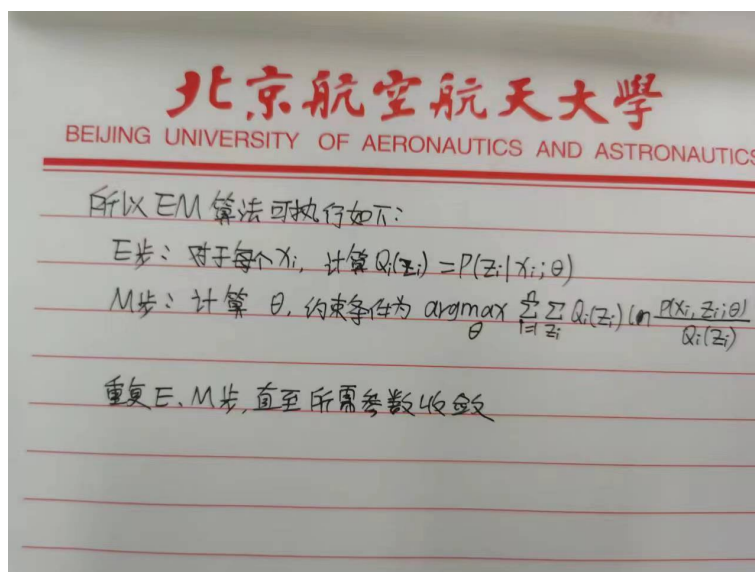 北京航空航天大學
BEIJING UNIVERSITY OF AERONAUTICS AND ASTRONAUTICS
所以EM算法可执行如下:
E步: 对于每个xᵢ, 计算Qᵢ(zᵢ)=P(zᵢ|xᵢ;θ)
M步: 计算 θ, 约束条件为 argmax_θ ∑_{i=1}^{n} ∑_{zᵢ} Qᵢ(zᵢ) ln P(xᵢ,zᵢ;θ)/Qᵢ(zᵢ)
重复E、M步,直至所需参数收敛